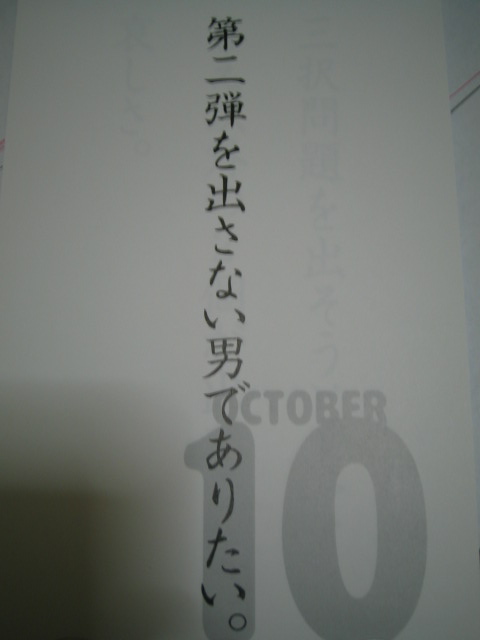 第二弾を出さない男でありたい。
OCTOBER
10